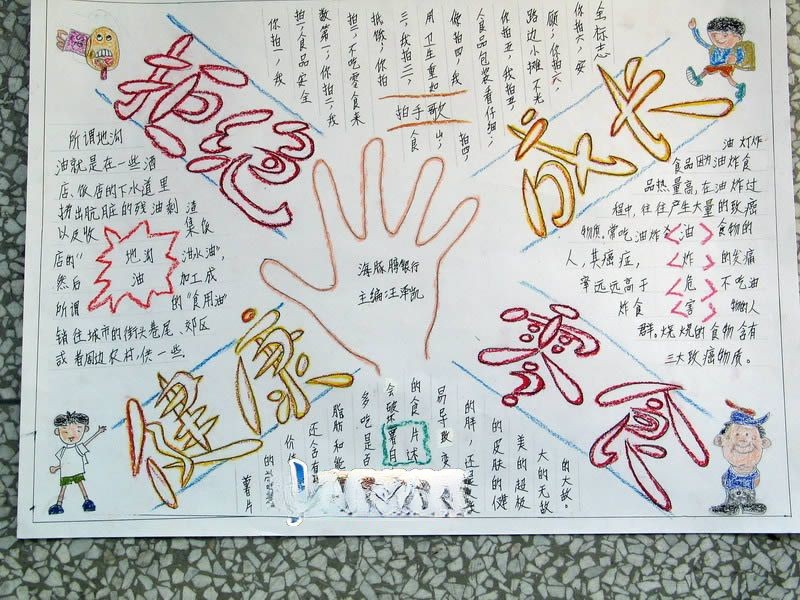 拒绝
成长
健康
零食
你拍一，我
拍一，食品安全
数第一；你拍二，我
拍二，不吃零食来
抵饿；你拍
三，我拍三，
用卫生重如
山；
你拍四，我
拍四，
食品包装看仔细；
你拍五，我拍五，
路边小摊不光
顾；你拍六，
全标志
拍手歌
所谓地沟
油就是在一些酒
店、饭店的下水道里
捞出肮脏的残油剩渣
以及收集饭
店的“泔水油”，
然后加工成
所谓的“食用油”
销往城市的街头巷尾、郊区
或者周边农村，供一些
地沟
油
海豚牌银行
主编：汪泽凯
油炸
食品因油炸食
品热量高，在油炸过
程中，往往产生大量的致癌
物质。常吃油炸食物的
人，其癌症，的发病
率远远高于不吃油
炸食物的人
群。烧烧的食物含有
三大致癌物质。
油
炸
危
害
薯片
的
价值
还含有
脂肪和能
多吃是否
会破坏
的食
易导致
的胖，还
的皮肤的健
美的超级
大的无敌
的大敌。
薯片
自述